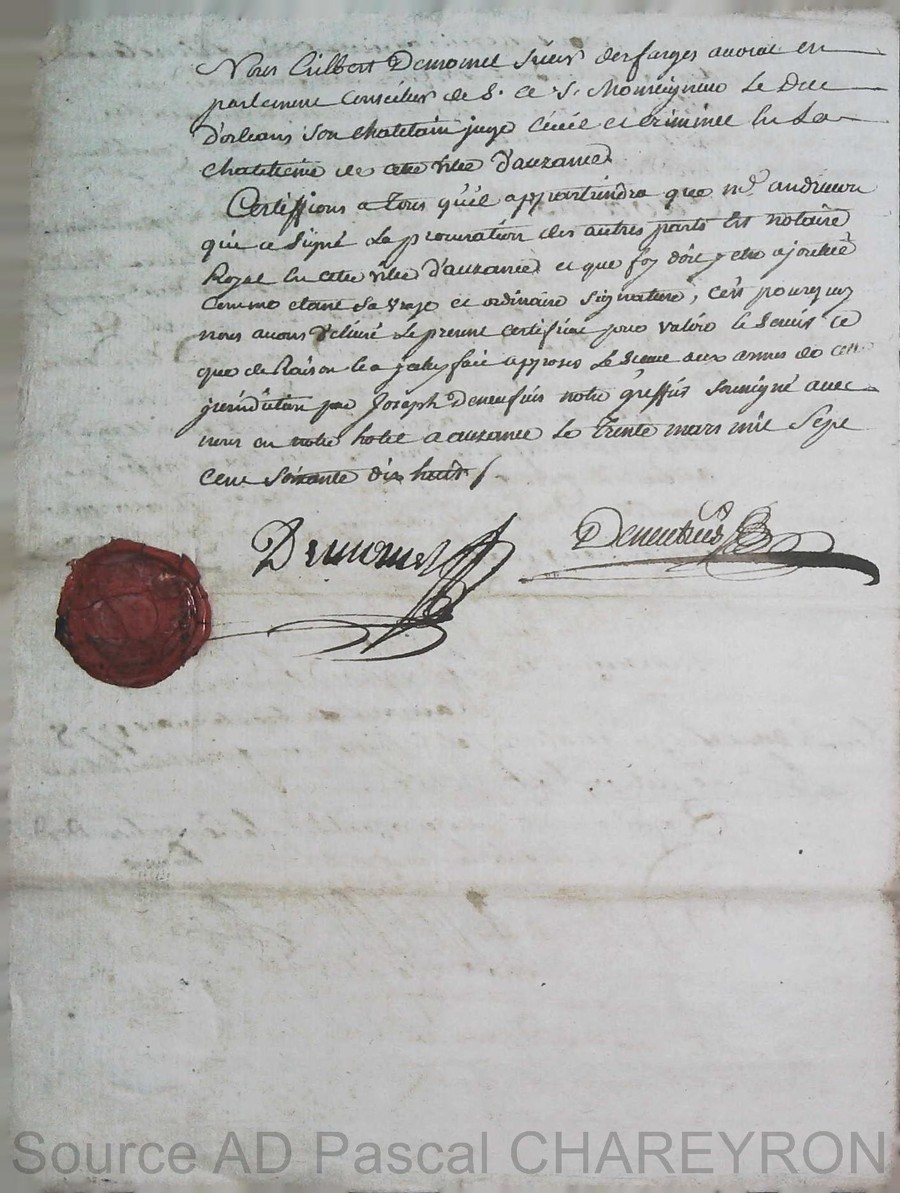 Nous Gilbert Demomet sieur desfarges avocat en
parlement conseiller de S. A. S. Monseigneur Le Duc
D'orleans son chatelain juge Civil et criminel En La
chatelenie de cette ville d'auzances
Certiffions a tous qu'il appartiendra que me. andrieu
qui a signé La procuration des autres parts Est notaire
Royal En cette ville d'auzances et que foy doit y etre ajoutée
comme etant sa vraye et ordinaire signature, c'est pourquoy
nous avons délivré Le present certificat pour valoir Et servir ce
que de Raison Et a fait apposer Le sceau aux armes de cette
jurisdiction par Joseph Deneufvis notre greffier soussigné avec
nous en notre hotel a auzances Le trente mars mil sept
cent soixante dix huit /.
Demomet
Deneufvis
Source AD Pascal CHAREYRON